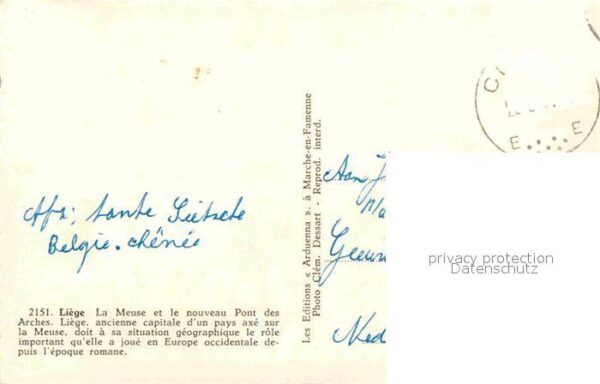 Afz: tante Sietske
Belgie. chênée
2151. Liège La Meuse et le nouveau Pont des
Arches. Liège, ancienne capitale d'un pays axé sur
la Meuse, doit à sa situation géographique le rôle
important qu'elle a joué en Europe occidentale de-
puis l'époque romane.
Les Editions « Arduenna », à Marche-en-Famenne
Photo Clém. Dessart - Reprod. interd.
Aan
Ned
C
E E
privacy protection
Datenschutz